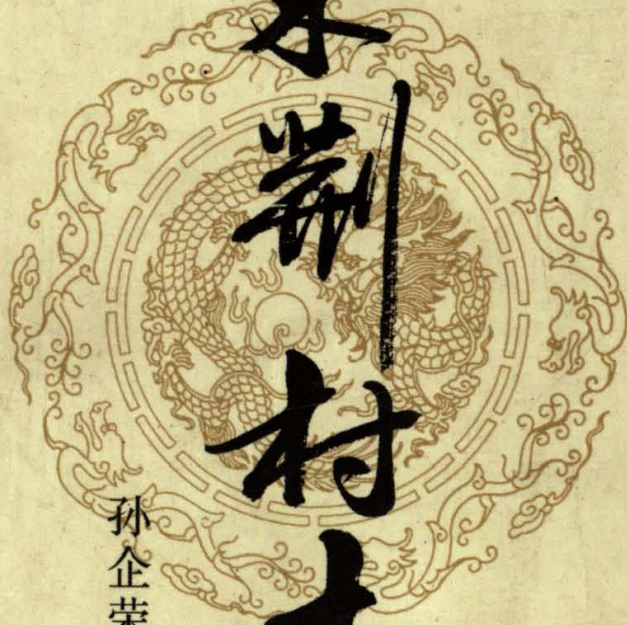 荆村
孙企荣